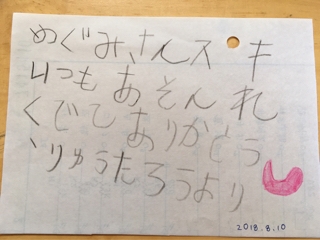 めぐみさんスキ
いつもあそんれ
くでてありがとう
りゅうたろうより
2018.8.10